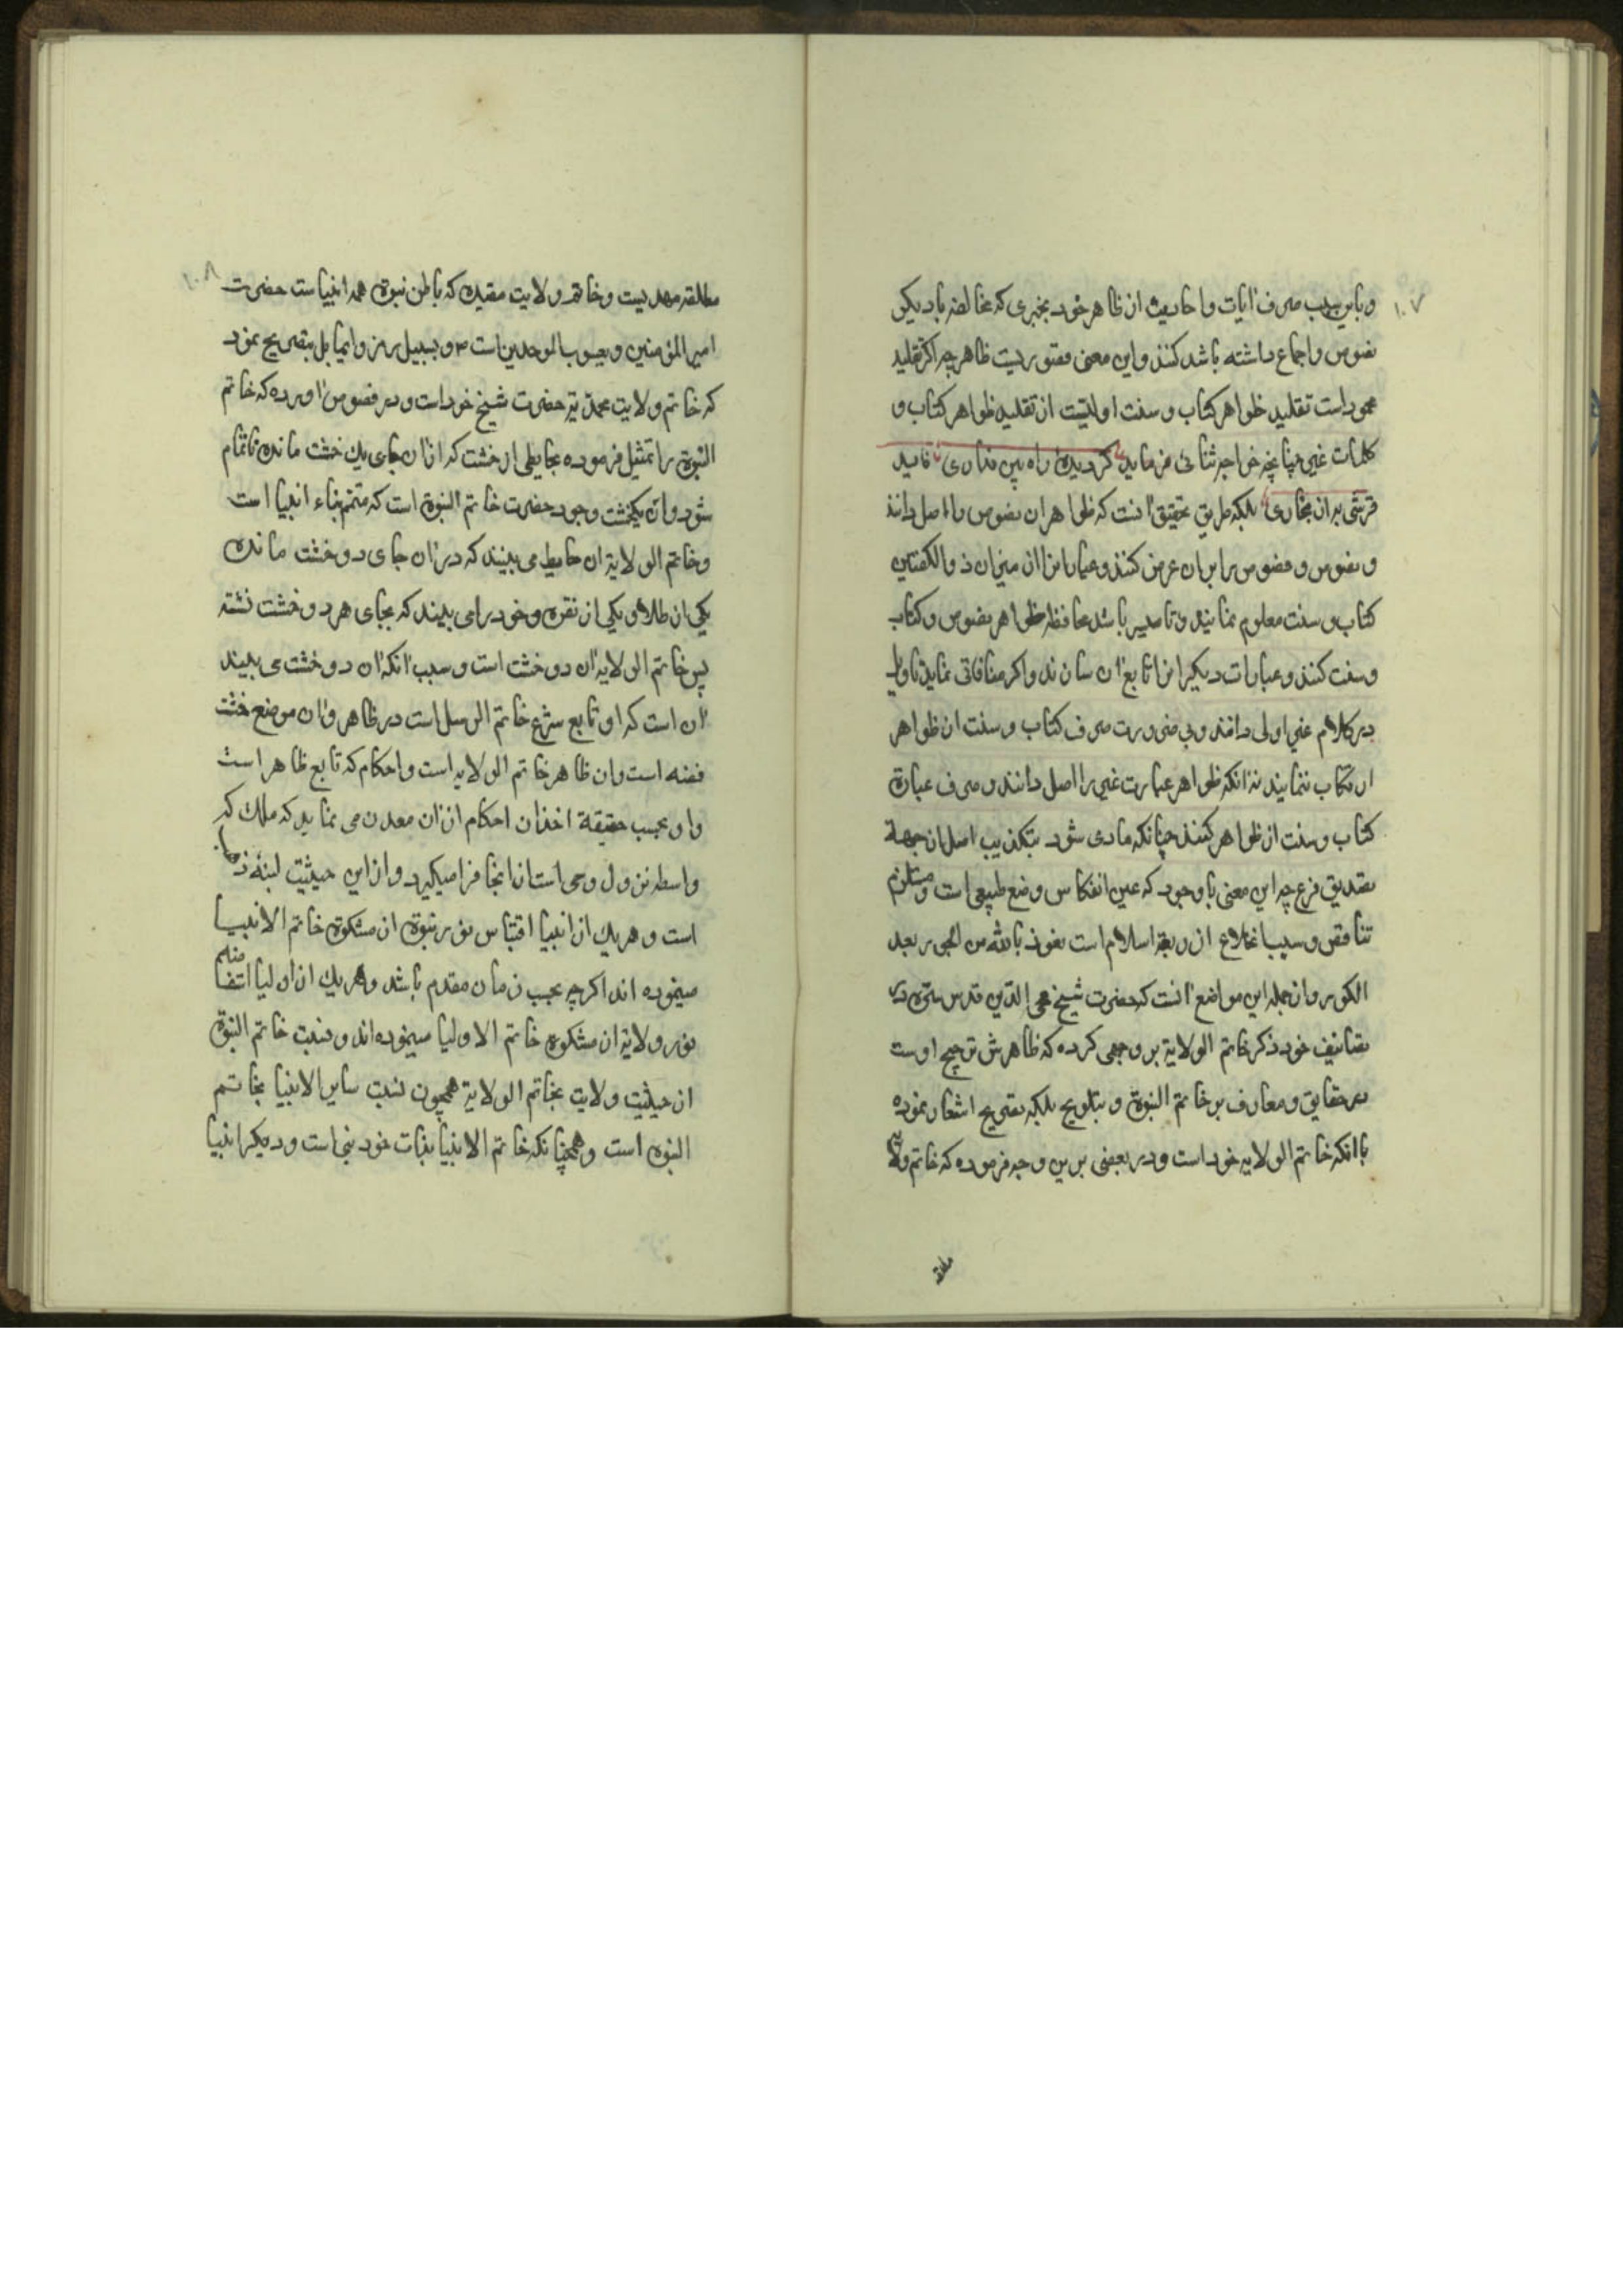 ۱۰۷
و باین سبب صرف آیات و احادیث از ظاهر خود بخبری که مخالفه بادیکر
نصوص و اجماع داشته باشد کنند و این معنی مقتوریست ظاهر چه اکر تقلید
محمود است تقلید ظواهر کتاب و سنت اولیست از تقلید ظواهر کتاب و
کلمات غیر چنانچه خواجه ثنائی فرماید کردیده راه بین نداری تاید
قرشی به از بخاری بلکه طریق تحقیق آنست که ظواهر ان نصوص را اصل دانند
و نصوص و فصوص را بران عرض کنند و عیار انرا از میزان ذو الکفتین
کتاب و سنت معلوم نمایند و تا میسر باشد محافظه ظواهر نصوص و کتاب
و سنت کنند و عبارات دیکر انرا تابع آن سازند و اکر منافاتی نماید تاویل
در کلام غیر اولی دانند و بی ضرورت صرف کتاب و سنت از ظواهر
ارتکاب ننمایند نه انکه ظواهر عبارت غیر را اصل دانند و صرف عبارة
کتاب و سنت از ظواهر کنند چنانکه مادی شود بتکذیب اصل از جهة
تصدیق فرع چه این معنی با وجود که عین انعکاس وضع طبیعی است و مستلزم
تناقض و سبب انخلاع از ربقه اسلام است نعوذ بالله من الحور بعد
الکور و از جمله این مواضع آنست که حضرت شیخ محی الدین قدس سره در
تصانیف خود ذکر خاتم الولایة بر وجهی کرده که ظاهرش ترجیح اوست
در حقایق و معارف بر خاتم النبوة و بتلویح بلکه بتصریح اشعار نموده
باانکه خاتم الولایه خود است و در بعضی برین وجه فرموده که خاتم ولایة
مطلقه
۱۰۸
مطلقه مهدیست و خاتم ولایت مقیده که باطن نبوة همه انبیاست حضرت
امیر المؤمنین و یعسوب الموحدین است م و بسبیل رمز و ایما بل بتصریح نمود
که خاتم ولایت محمدیه حضرت شیخ خود است و در فصوص آورده که خاتم
النبوة را تمثیل فرموده بحایطی از خشت که ازان جای یک خشت مانده تا تمام
شود و آن یکخشت وجود حضرت خاتم النبوة است که متمم بناء انبیا است
و خاتم الولایة ان حایط می بیند که در ان جای دو خشت مانده
یکی از طلا و یکی از نقره و خود را می بیند که بجای هر دو خشت نشته
پس خاتم الولایه آن دو خشت است و سبب آنکه آن دو خشت می بیند
آن است که او تابع شرع خاتم الرسل است در ظاهر و ان موضع خشت
فضه است و ان ظاهر خاتم الولایه است و احکام که تابع ظاهر است
و او بحسب حقیقة اخذ ان احکام از ان معدن می نماید که ملک که
واسطه نزول وحی است از انجا فرا میکیرد و از این حیثیت لبنه ذهب
است و هر یک از انبیا اقتباس نور نبوة از مشکوة خاتم الانبیا
مینموده اند اکرچه بحسب زمان مقدم باشد و هر یک از اولیا اقتضا
منهم
نور ولایة از مشکوة خاتم الاولیا مینموده اند و نسبت خاتم النبوة
از حیثیت ولایت بخاتم الولایة همچون نسبت سایر الانبیا بخاتم
النبوه است و همچنانکه خاتم الانبیا بذات خود نبی است و دیکر انبیا